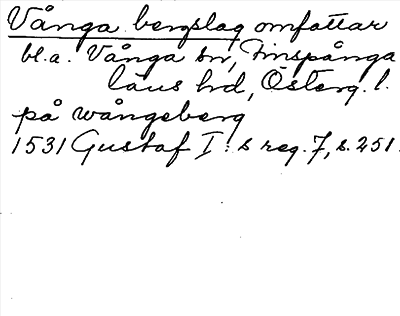 Vånga bergslag omfattar
bl.a. Vånga sn, Finspånga
läns hd, Österg. l.
på wångeberg
1531 Gustaf I:s reg. 7, s. 251.